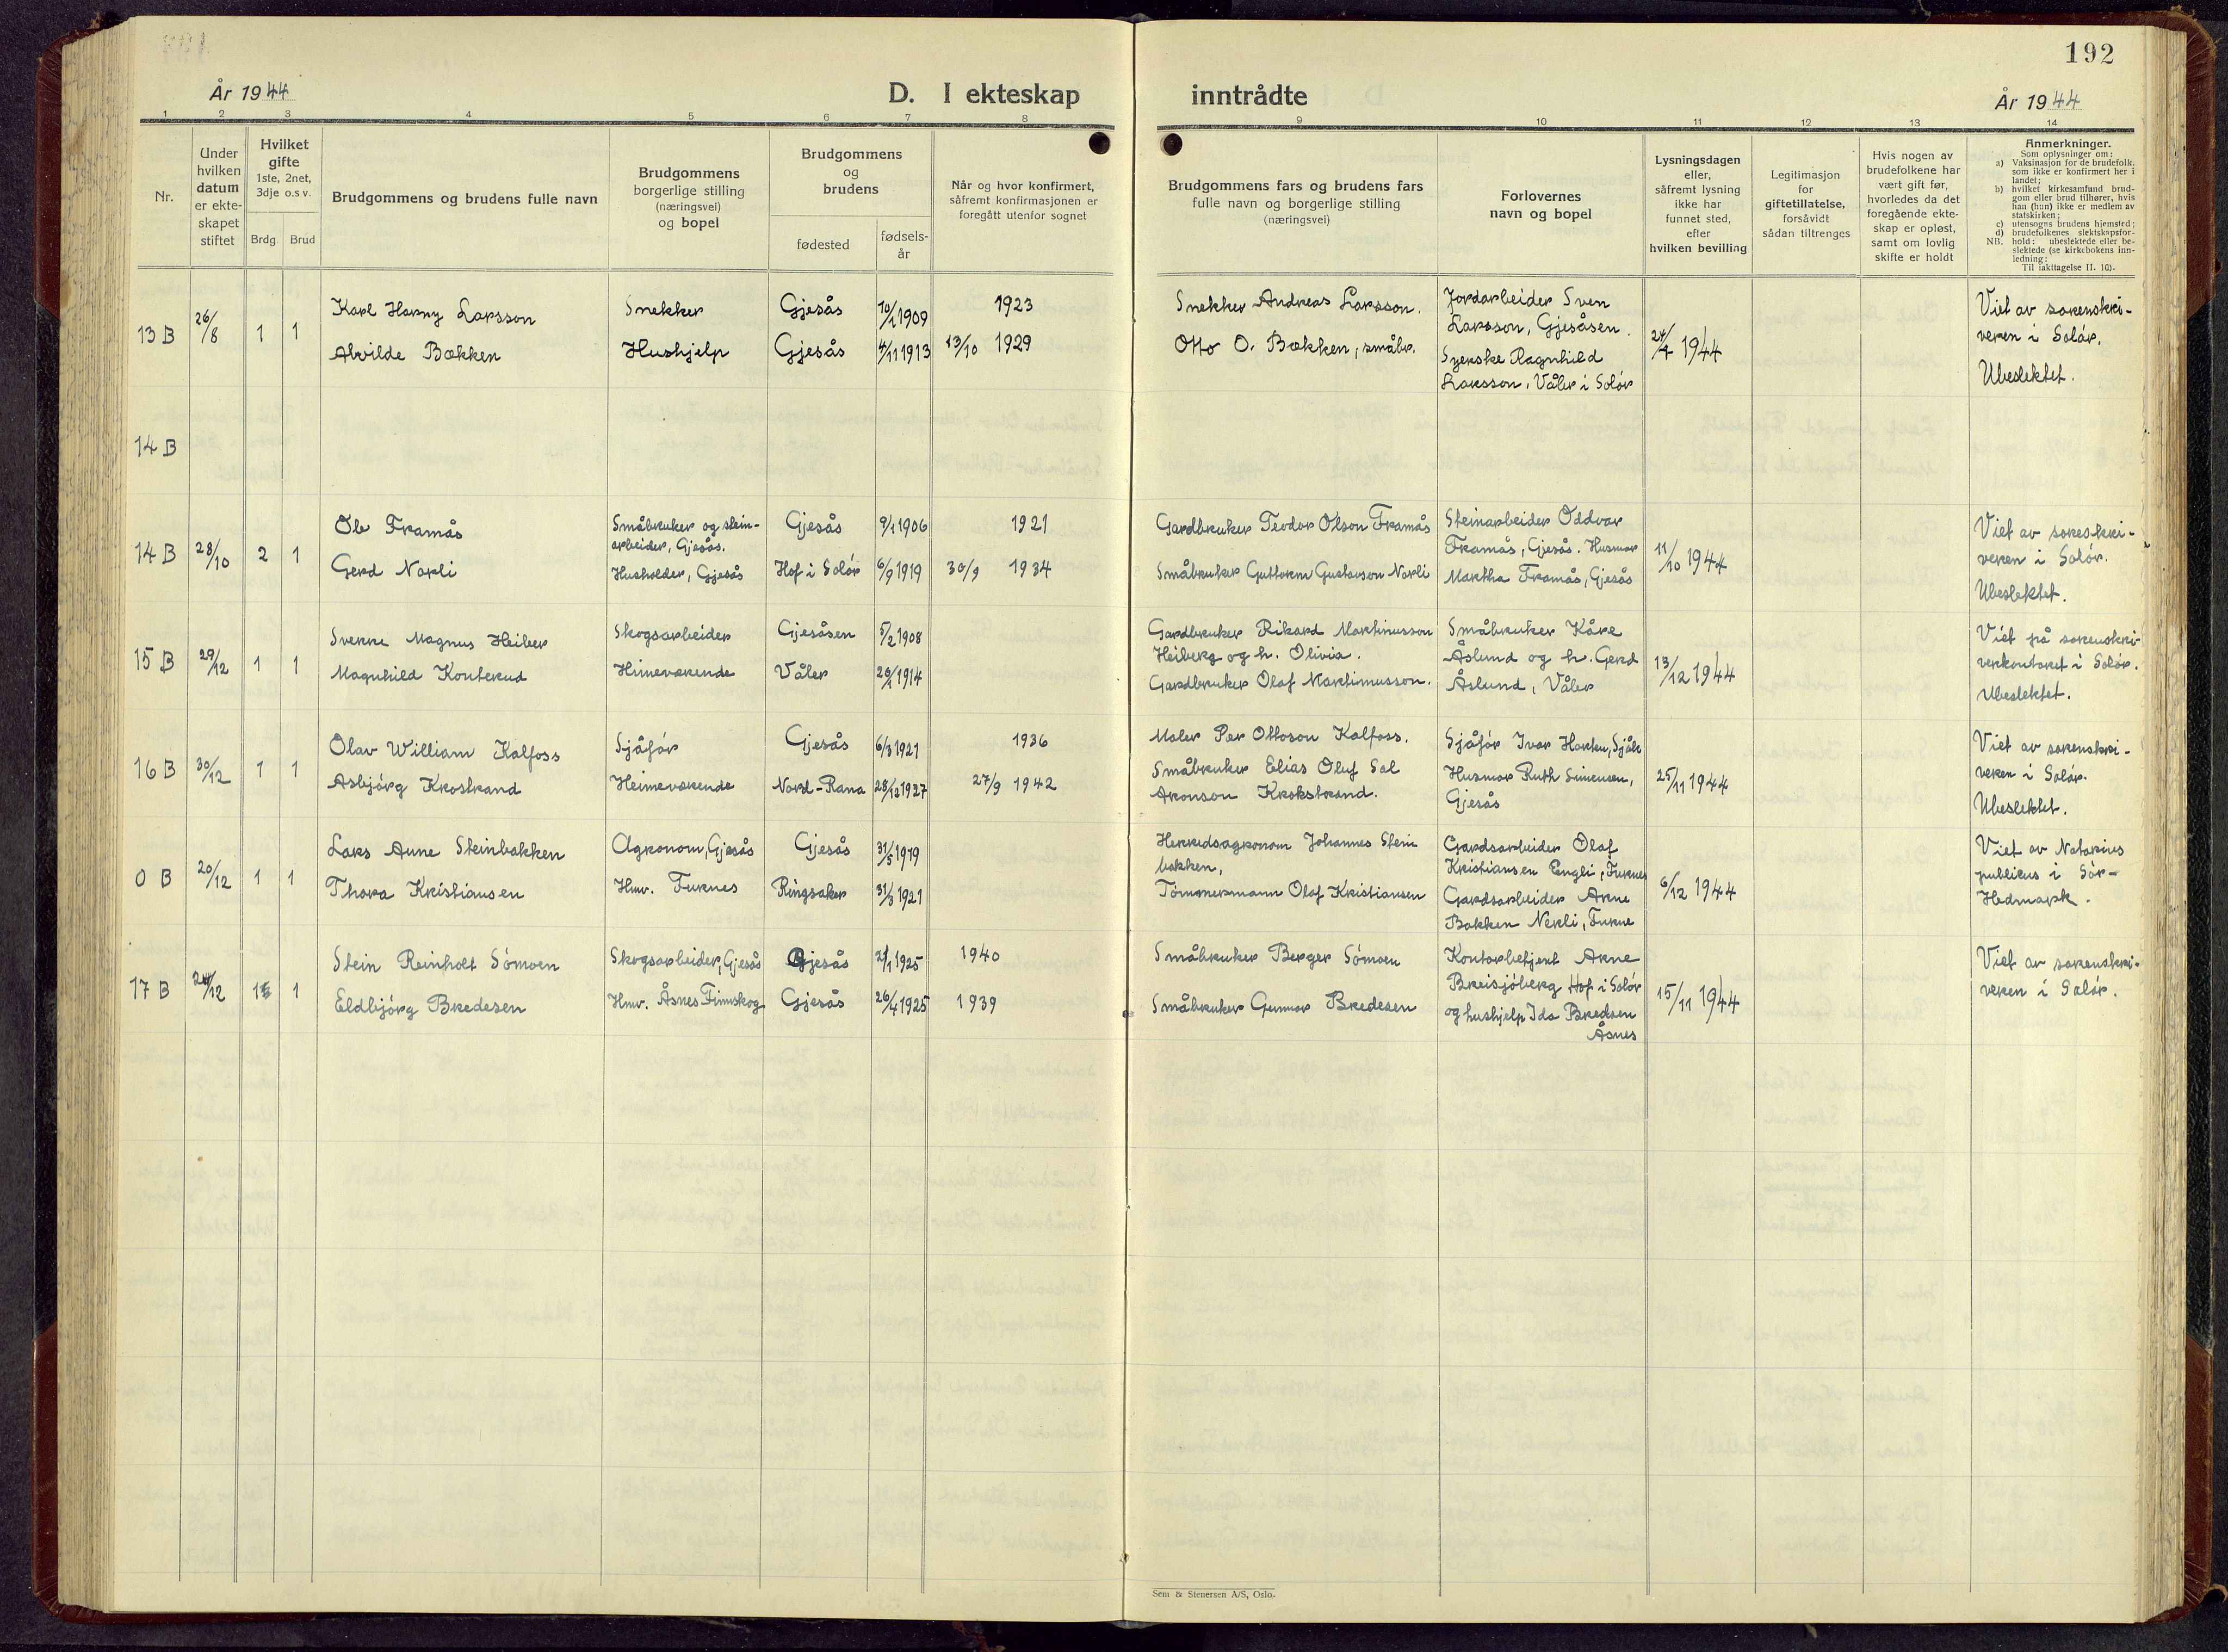 192
År 1944
D. I ekteskap
inntrådte
År 1944
1 2 3 4 5 6 7 8 9 10 11 12 13 14
Nr.
Under
hvilken
datum
er ekte-
skapet
stiftet
Hvilket
gifte
1ste, 2net,
3dje o.s v.
Brdg. Brud
Brudgommens og brudens fulle navn
Brudgommens
borgerlige stilling
(næringsvei)
og bopel
Brudgommens
og
brudens
fødested
fødsels-
år
Når og hvor konfirmert,
såfremt konfirmasjonen er
foregått utenfor sognet
Brudgommens fars og brudens fars
fulle navn og borgerlige stilling
(næringsvei)
Forlovernes
navn og bopel
Lysningsdagen
eller,
såfremt lysning
ikke har
funnet sted,
efter
hvilken bevilling
Legitimasjon
for
giftetillatelse,
forsåvidt
sådan tiltrenges
Hvis nogen av
brudefolkene har
vært gift før,
hvorledes da det
foregående ekte-
skap er opløst,
samt om lovlig
skifte er holdt
Anmerkninger.
Som oplysninger om:
a) Vaksinasjon for de brudefolk.
som ikke er konfirmert her i
landet;
b) hvilket kirkesamfund brud-
gom eller brud tilhører, hvis
han (hun) ikke er medlem av
statskirken;
c) utensogns brudens hjemsted;
d) brudefolkenes slektskapsfor-
NB. hold: ubeslektede eller be-
slektede (se kirkebokens inn-
ledning:
Til iakttagelse II. 10).
13 B
26/8
1 1
Karl Harny Larsson
Snekker
Gjesås
1909
1923
Alvilde Bækken
Hushjelp
Gjesås
4/11 1913
13/10 1929
Snekker Andreas Larsson.
Otto O. Bækken, småbr.
Jordarbeider Sven
Larsson, Gjesåsen.
Syerske Ragnhild
Larsson, Våler i Solør
1944
Viet av sorenskri-
veren i Solør.
Ubeslektet.
14 B
14 B
28/10
2 1
Ole Framås
Småbruker og stein-
arbeider, Gjesås.
Gjesås
9/1 1906
1921
Gerd Norli
Husholder, Gjesås
Hof i Solør
6/9 1919
30/9 1934
Gardbruker Teodor Olson Framås
Småbruker Guttorm Gustavson Norli
Steinarbeider Oddvar
Framås, Gjesås. Husmor
Martha Framås, Gjesås
11/10 1944
Viet av soreskri-
veren i Solør.
Ubeslektet.
15 B
29/12
1 1
Sverre Magnus Heiber
Skogsarbeider
Gjesåsen
5/2 1908
Magnhild Konterud
Himeværende
Våler
26/1 1914
Gardbruker Rikard Martinusson
Heiberg og h. Olivia.
Gardbruker Olaf Martinusson.
Småbruker Kåre
Åslund og h. Gerd
Åslund, Våler
13/12 1944
Viet på sorenskri-
verkontoret i Solør.
Ubeslektet.
16 B
30/12
1 1
Olav William Kalfoss
Sjåfør
Gjesås
6/3 1921
1936
Asbjørg Krostrand
Heimeværende
Nord-Rana
28/12 1927
27/9 1942
Maler Per Ottoson Kalfoss.
Småbruker Elias Oluf Sal
Aronson Krokstrand.
Sjåfør Ivar Horten, Sjåli
Husmor Ruth Simensen,
Gjesås
25/11 1944
Viet av sorenskri-
veren i Solør.
Ubeslektet.
0 B
20/12
1 1
Lars Aune Steinbakken
Agronom, Gjesås
Gjesås
31/5 1919
Thora Kristiansen
Hmv. Furnes
Ringsaker
31/3 1921
Herredsagronom Johannes Stein
bakken,
Tømmermann Olaf Kristiansen
Gardsarbeider Olaf
Kristiansen Engli, Furnes
Gardsarbeider Arne
Bakken Nerli, Furne
6/12 1944
Viet av Notarius
publicus i Sør-
Hedmark.
17 B
1 1
Stein Reinholt Sømoen
Skogsarbeider, Gjesås
Gjesås
2/1 1925
1940
Eldbjørg Bredesen
Hmv. Åsnes Finnskog
Gjesås
26/4 1925
1939
Småbruker Berger Sømoen
Småbruker Gunnar Bredesen
Kontorbetjent Arne
Breisjøberg Hof i Solør
og hushjelp Ida Bredesen
Åsnes
15/11 1944
Viet av sorenskri-
veren i Solør.
Sem & Stenersen A/S, Oslo.